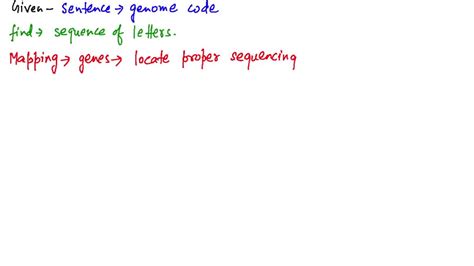 Given - sentence → genome code
find → sequence of letters.
Mapping → genes → locate proper sequencing